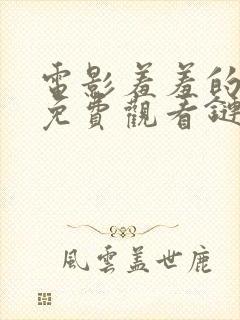 電影羞羞的
免費觀看鏈
風雲蓋世鹿